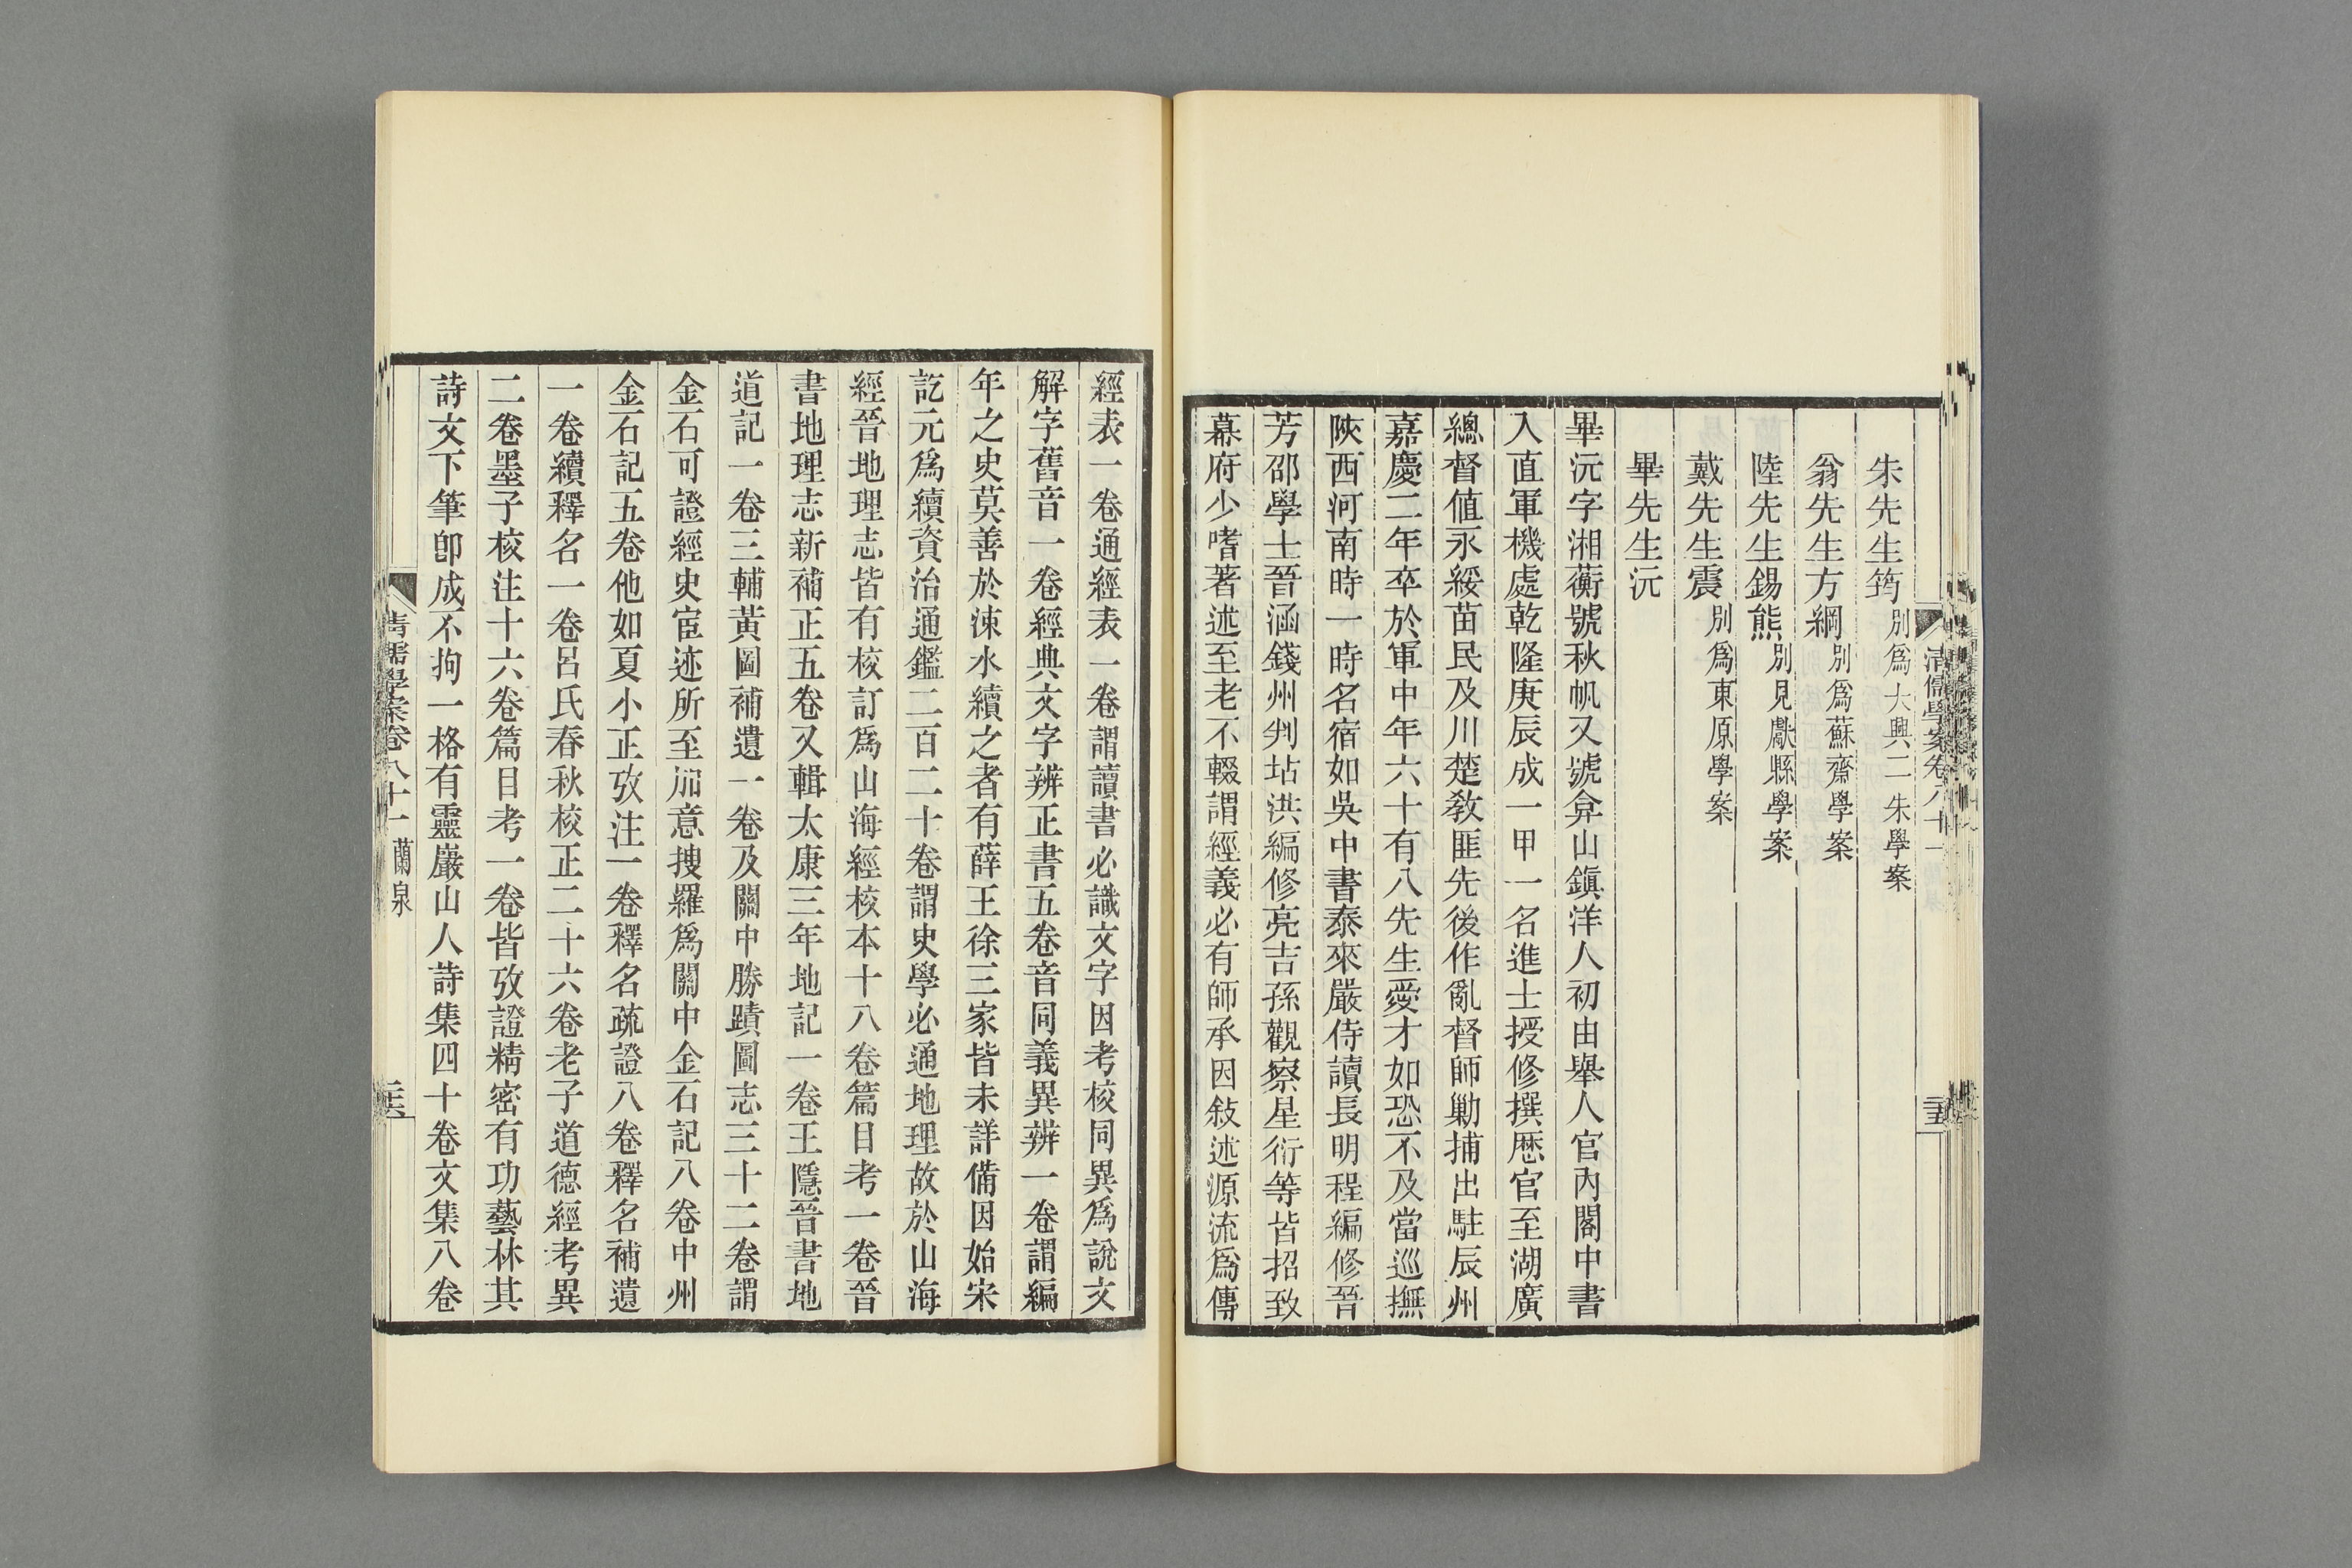 清儒學案卷八十一
朱先生筠別爲大興二朱學案
翁先生方綱別爲蘇齋學案
陸先生錫熊別見獻縣學案
戴先生震別爲東原學案
畢先生沅
畢沅字湘蘅號秋帆又號弇山鎭洋人初由舉人官內閣中書
入直軍機處乾隆庚辰成一甲一名進士授修撰歷官至湖廣
總督値永綏苗民及川楚敎匪先後作亂督師勦捕出駐辰州
嘉慶二年卒於軍中年六十有八先生愛才如恐不及當巡撫
陝西河南時一時名宿如吳中書泰來嚴侍讀長明程編修晉
芳邵學士晉涵錢州判坫洪編修亮吉孫觀察星衍等皆招致
幕府少嗜著述至老不輟謂經義必有師承因敍述源流爲傳
經表一卷通經表一卷謂讀書必識文字因考核同異爲說文
解字舊音一卷經典文字辨正書五卷音同義異辨一卷謂編
年之史莫善於涑水續之者有薛王徐三家皆未詳備因始宋
訖元爲續資治通鑑二百二十卷謂史學必通地理故於山海
經晉地理志皆有校訂爲山海經校本十八卷篇目考一卷晉
書地理志新補正五卷又輯太康三年地記一卷王隱晉書地
道記一卷三輔黃圖補遺一卷及關中勝蹟圖志三十二卷謂
金石可證經史宦迹所至加意搜羅爲關中金石記八卷中州
金石記五卷他如夏小正攷注一卷釋名疏證八卷釋名補遺
一卷續釋名一卷呂氏春秋校正二十六卷老子道德經考異
二卷墨子校注十六卷篇目考一卷皆攷證精密有功藝林其
詩文下筆卽成不拘一格有靈巖山人詩集四十卷文集八卷
清儒學案卷八十一 蘭泉